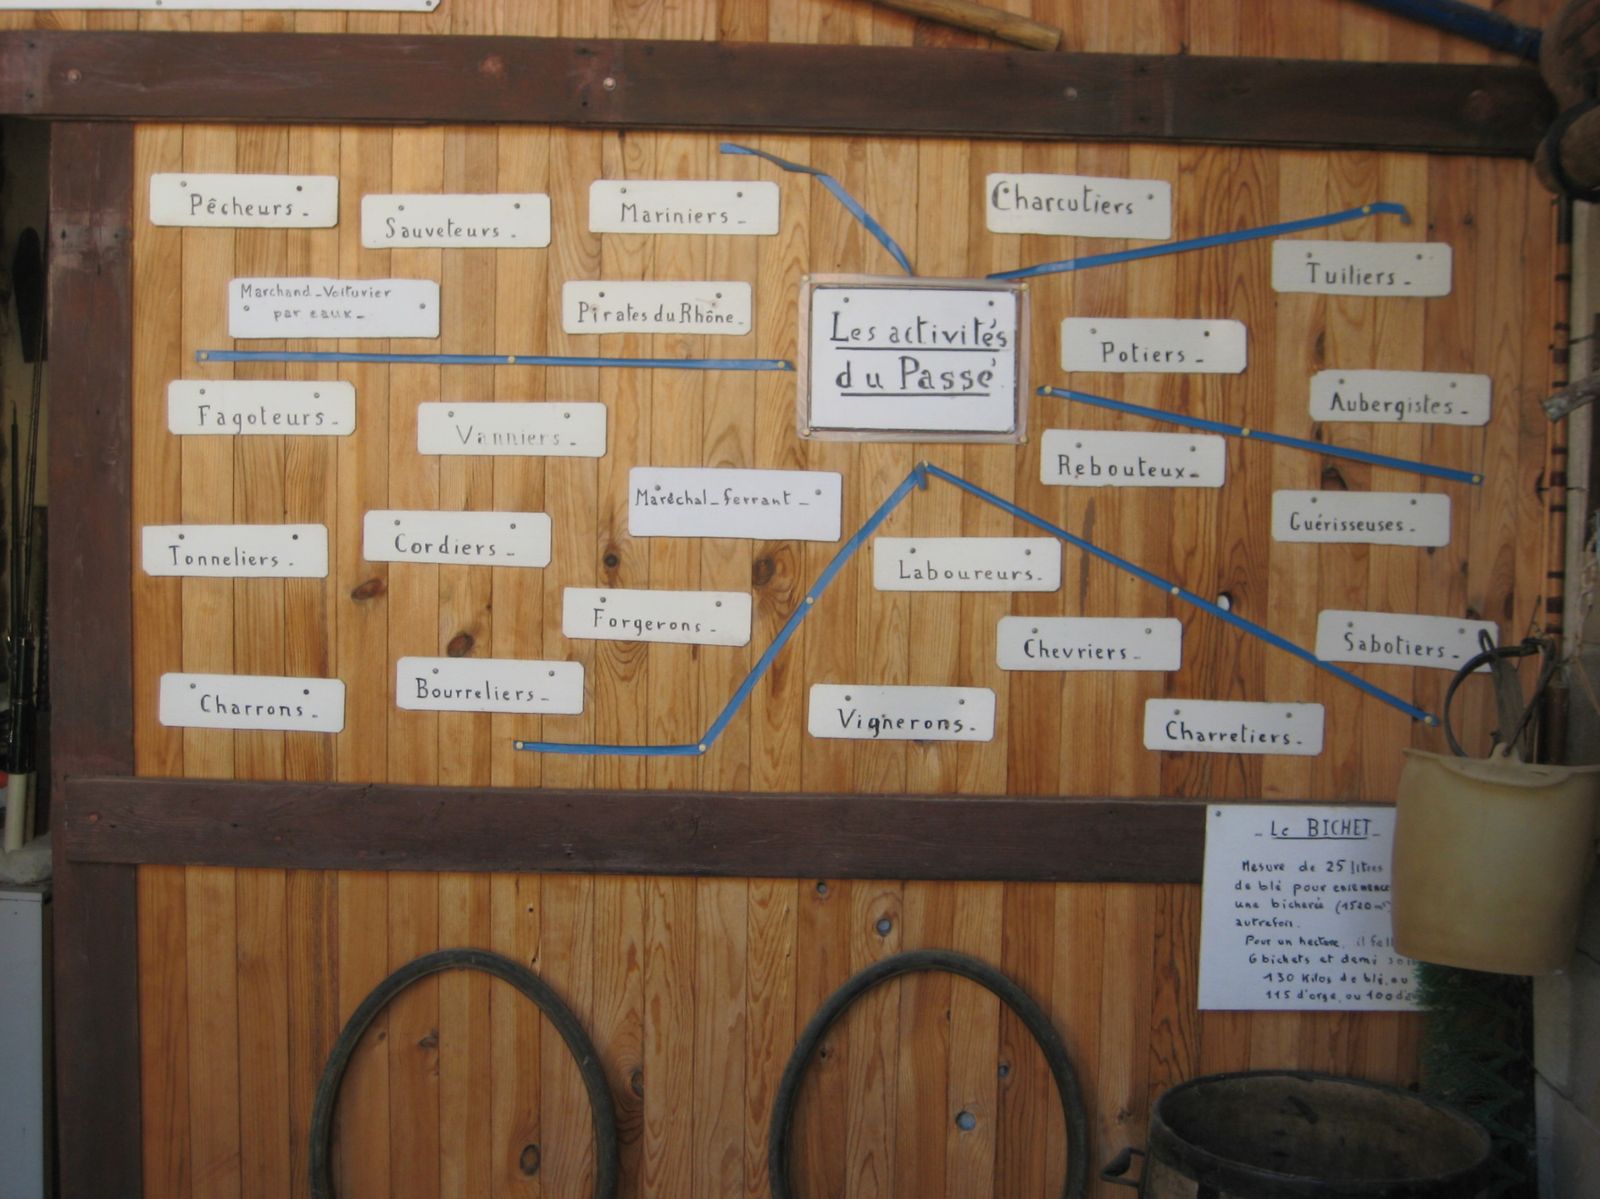 Pêcheurs -
Sauveteurs -
Mariniers -
Charcutiers
Tuiliers -
Marchand - Voiturier
par eaux -
Pirates du Rhône -
Les activités
du Passé
Potiers -
Aubergistes -
Fagoteurs -
Vanniers -
Rebouteux -
Maréchal - ferrant -
Guérisseuses -
Tonneliers -
Cordiers -
Laboureurs.
Forgerons -
Chevriers -
Sabotiers -
Charrons -
Bourreliers -
Vignerons -
Charretiers -
- Le BICHET -
Mesure de 25 litres
de blé pour ensemence
une bicherée (1520 m²)
autrefois.
Pour un hectare, il fall
6 bichets et demi soi
130 Kilos de blé, ou
115 d'orge, ou 100 d'